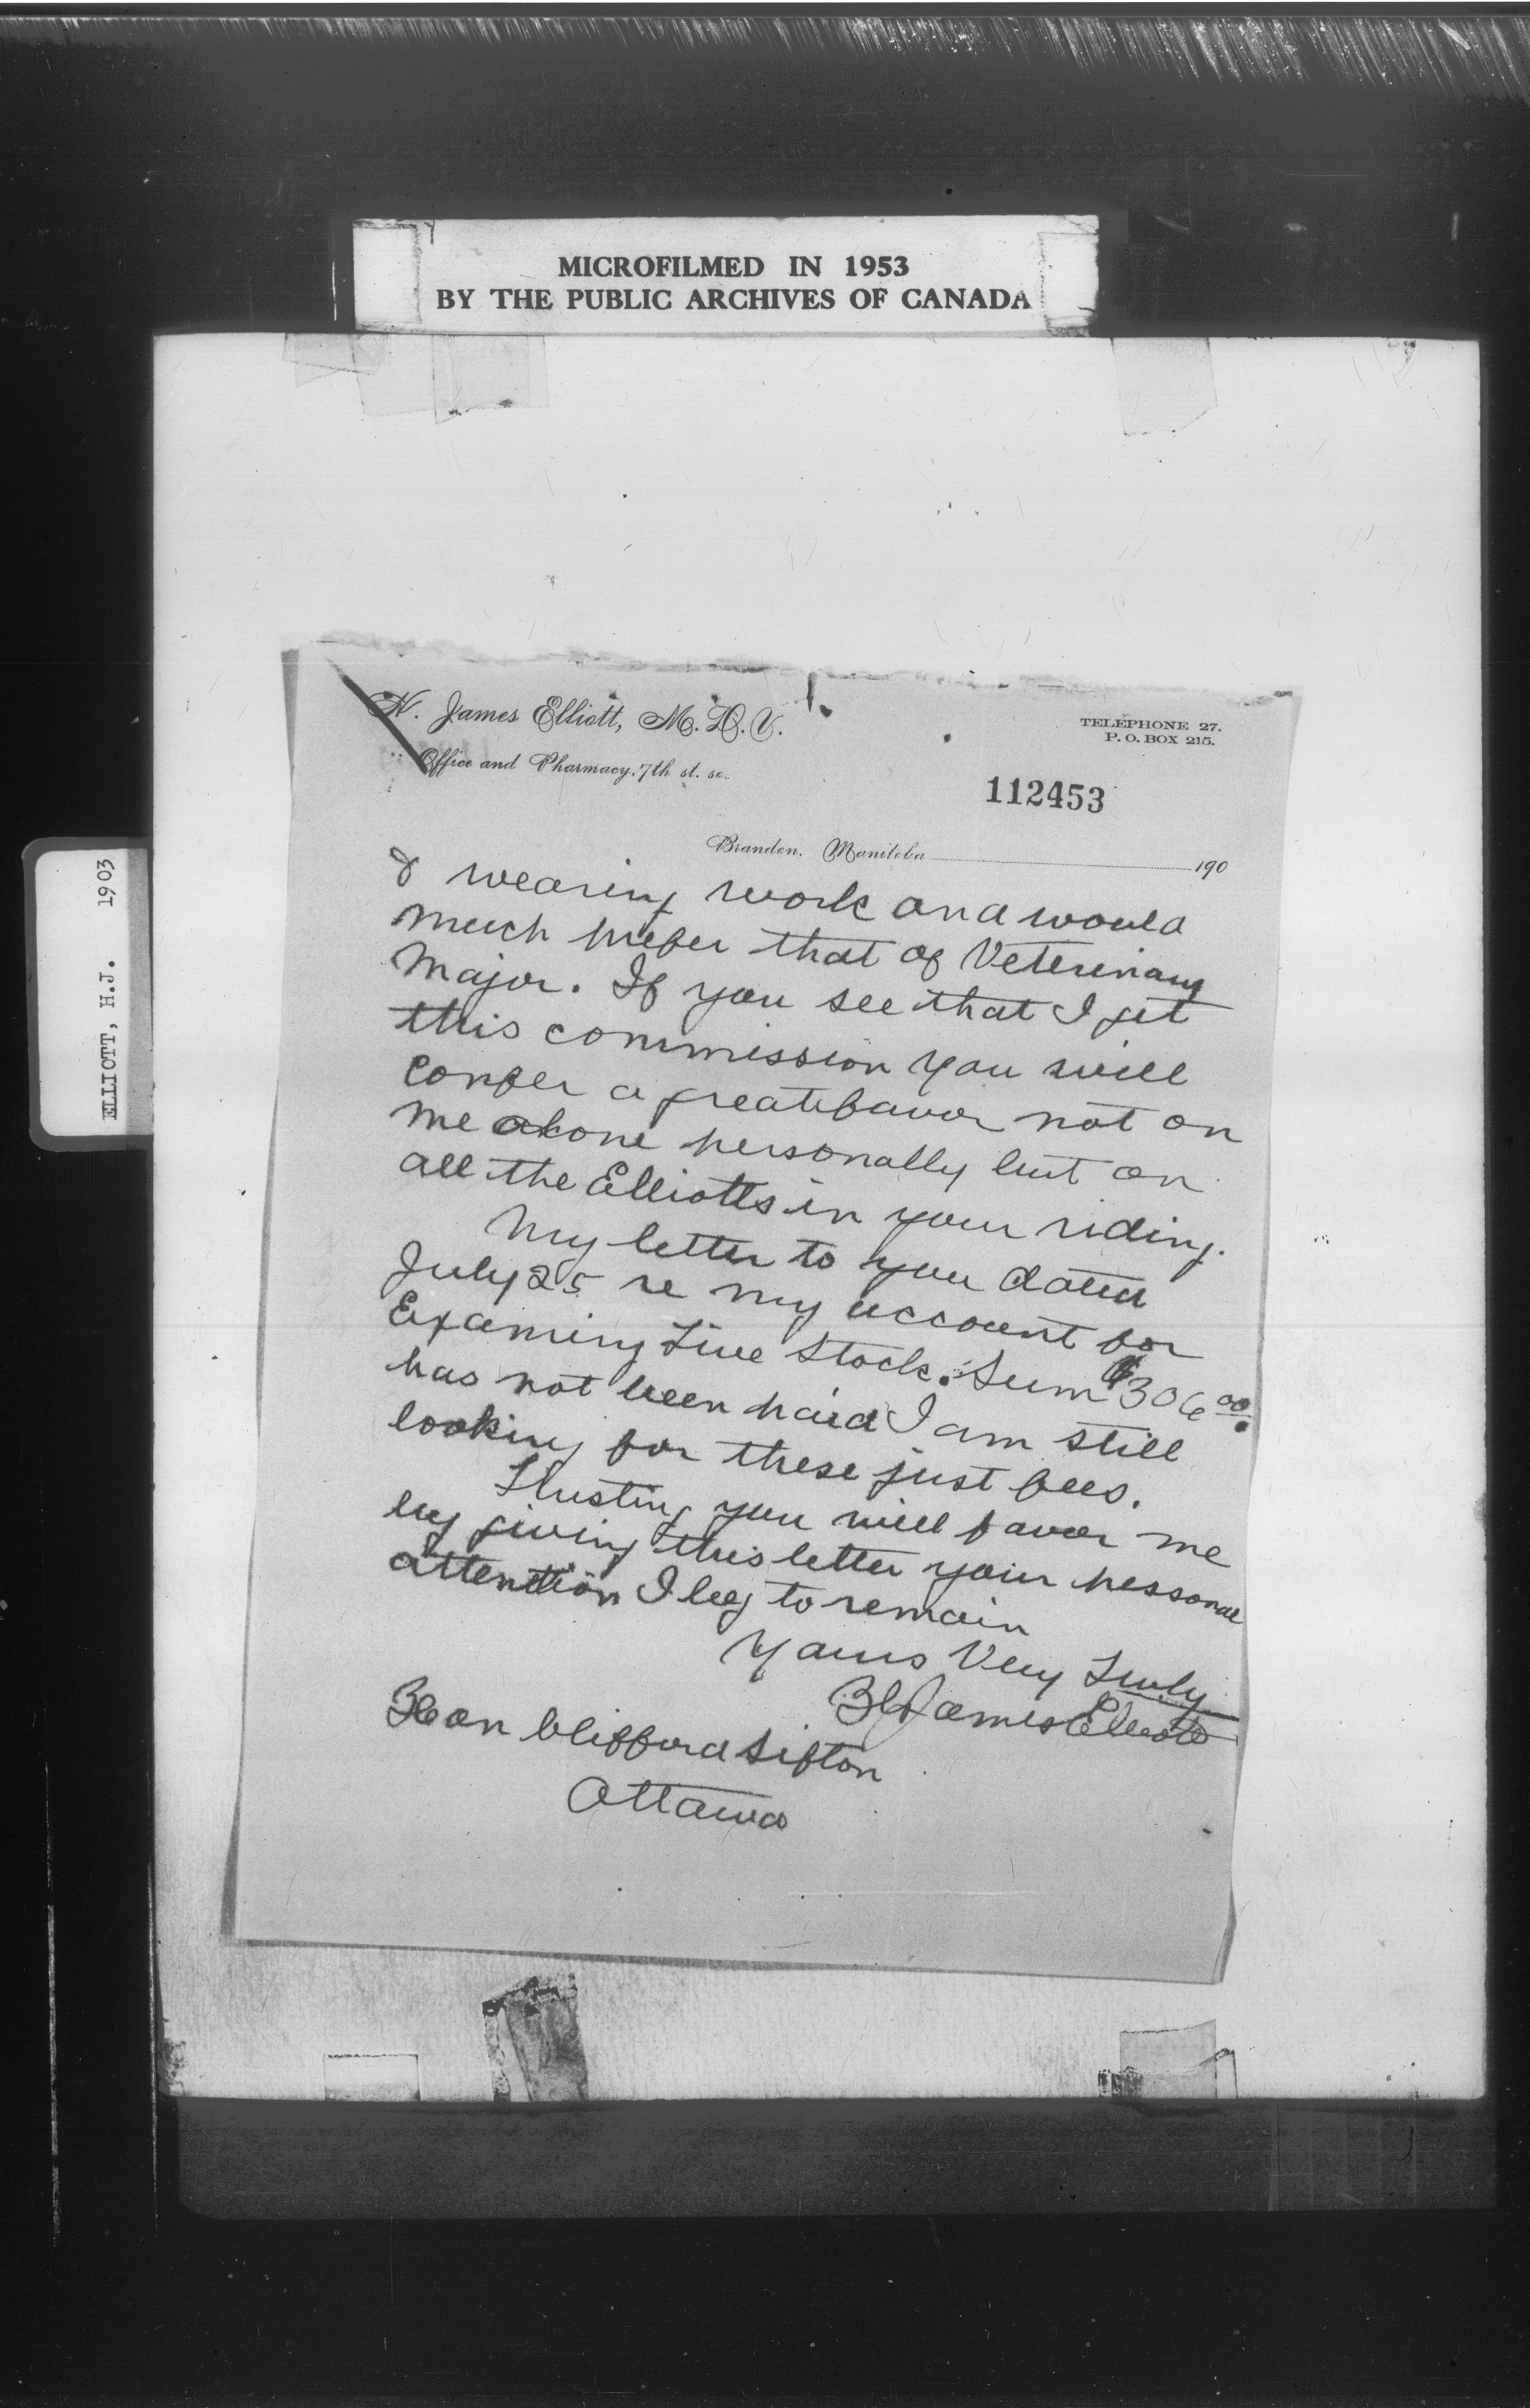 MICROFILMED IN 1953
BY THE PUBLIC ARCHIVES OF CANADA
ELLIOTT, H.J. 1903
H. James Elliott, M.D.V.
Office and Pharmacy, 7th st. so.
TELEPHONE 27.
P. O. BOX 215.
112453
Brandon, Manitoba 190
& wearing work and would
much prefer that of Veterinary
Major. If you see that I get
this commission you will
confer a great favor not on
me alone personally but on
all the Elliotts in your riding.
My letter to you dated
July 25 re my account for
Examining Live Stock. Sum $306.00.
has not been paid I am still
looking for these just fees.
Trusting you will favor me
by giving this letter your personal
attention I beg to remain
Yours Very Truly
H James Elliott
Hon Clifford Sifton
Ottawa